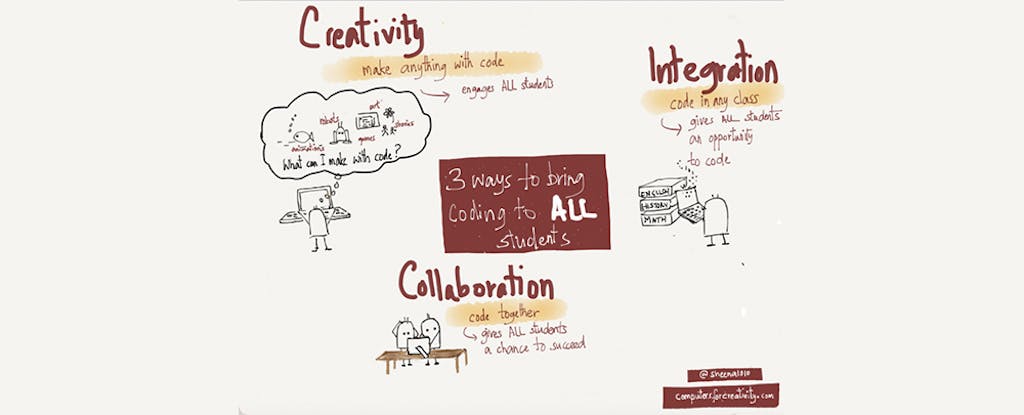 Creativity
make anything with code
engages ALL students
art
robots
stories
games
animations
What can I make with code?
Integration
code in any class
gives ALL students
an opportunity
to code
ENGLISH
HISTORY
MATH
3 ways to bring
coding to ALL
students
Collaboration
code together
gives ALL students
a chance to succeed
@sheena1010
computersforcreativity.com